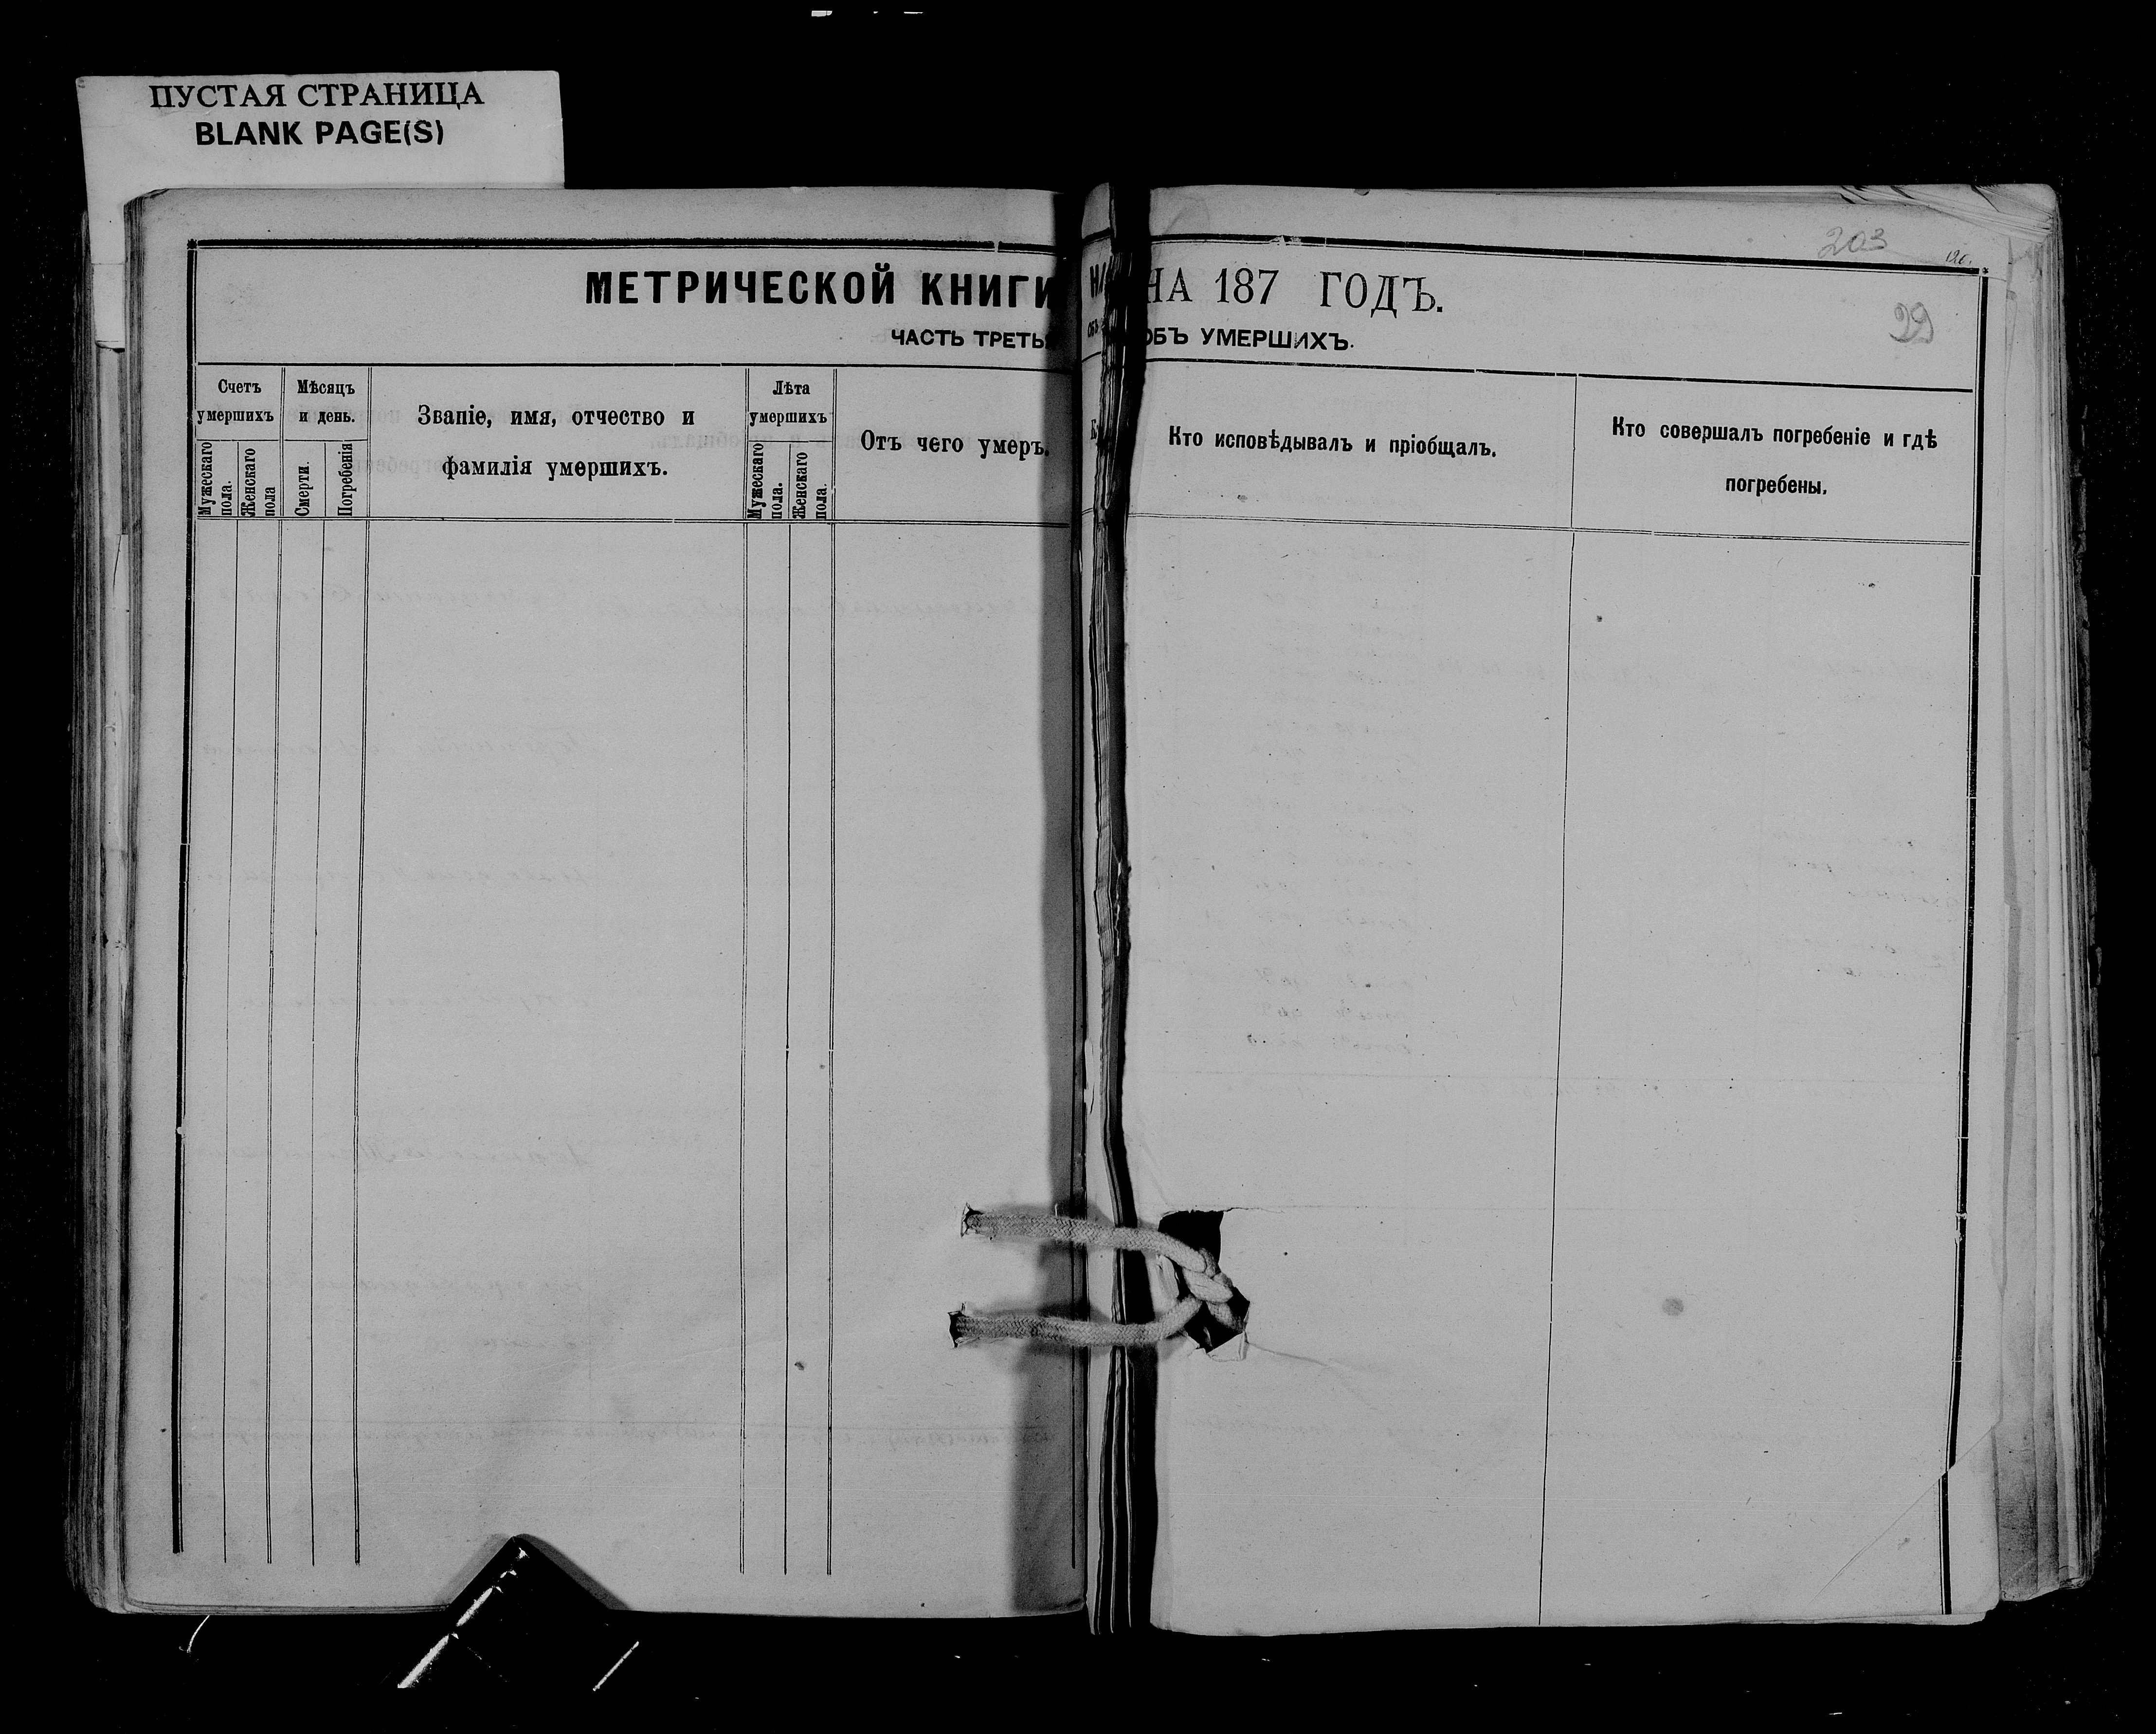 ПУСТАЯ СТРАНИЦА
BLANK PAGE(S)
203
29
МЕТРИЧЕСКОЙ КНИГИ НА 187 ГОДЪ.
ЧАСТЬ ТРЕТЬЯ ОБЪ УМЕРШИХЪ.
Счетъ
умершихъ
Мужескаго
пола.
Женскаго
пола
Мѣсяцъ
и день.
Смерти.
Погребенія
Званіе, имя, отчество и
фамилія умершихъ.
Лѣта
умершихъ
Мужескаго
пола.
Женскаго
пола.
Отъ чего умеръ.
Кто исповѣдывалъ и пріобщалъ.
Кто совершалъ погребеніе и гдѣ
погребены.